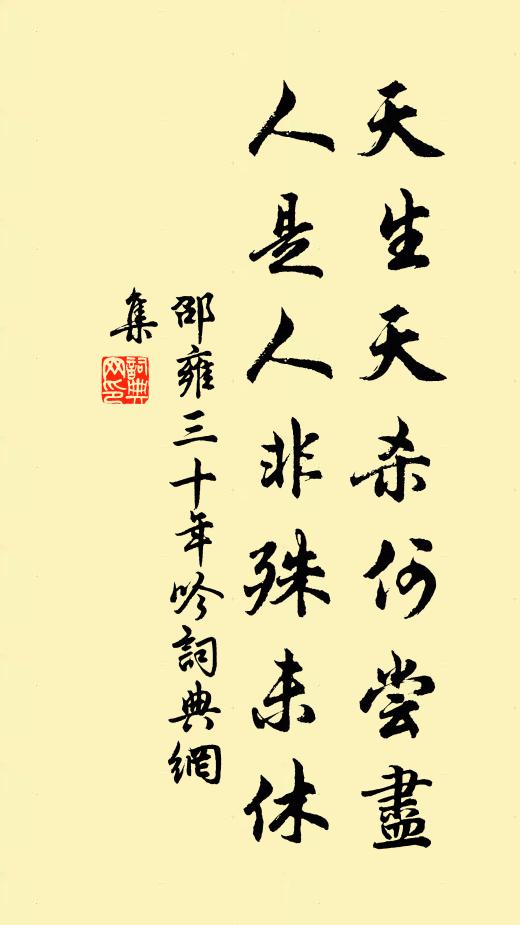 天生天杀何尝盡
人是人非殊未休
邵雍三十年吟詞典網
集
詞典
网印